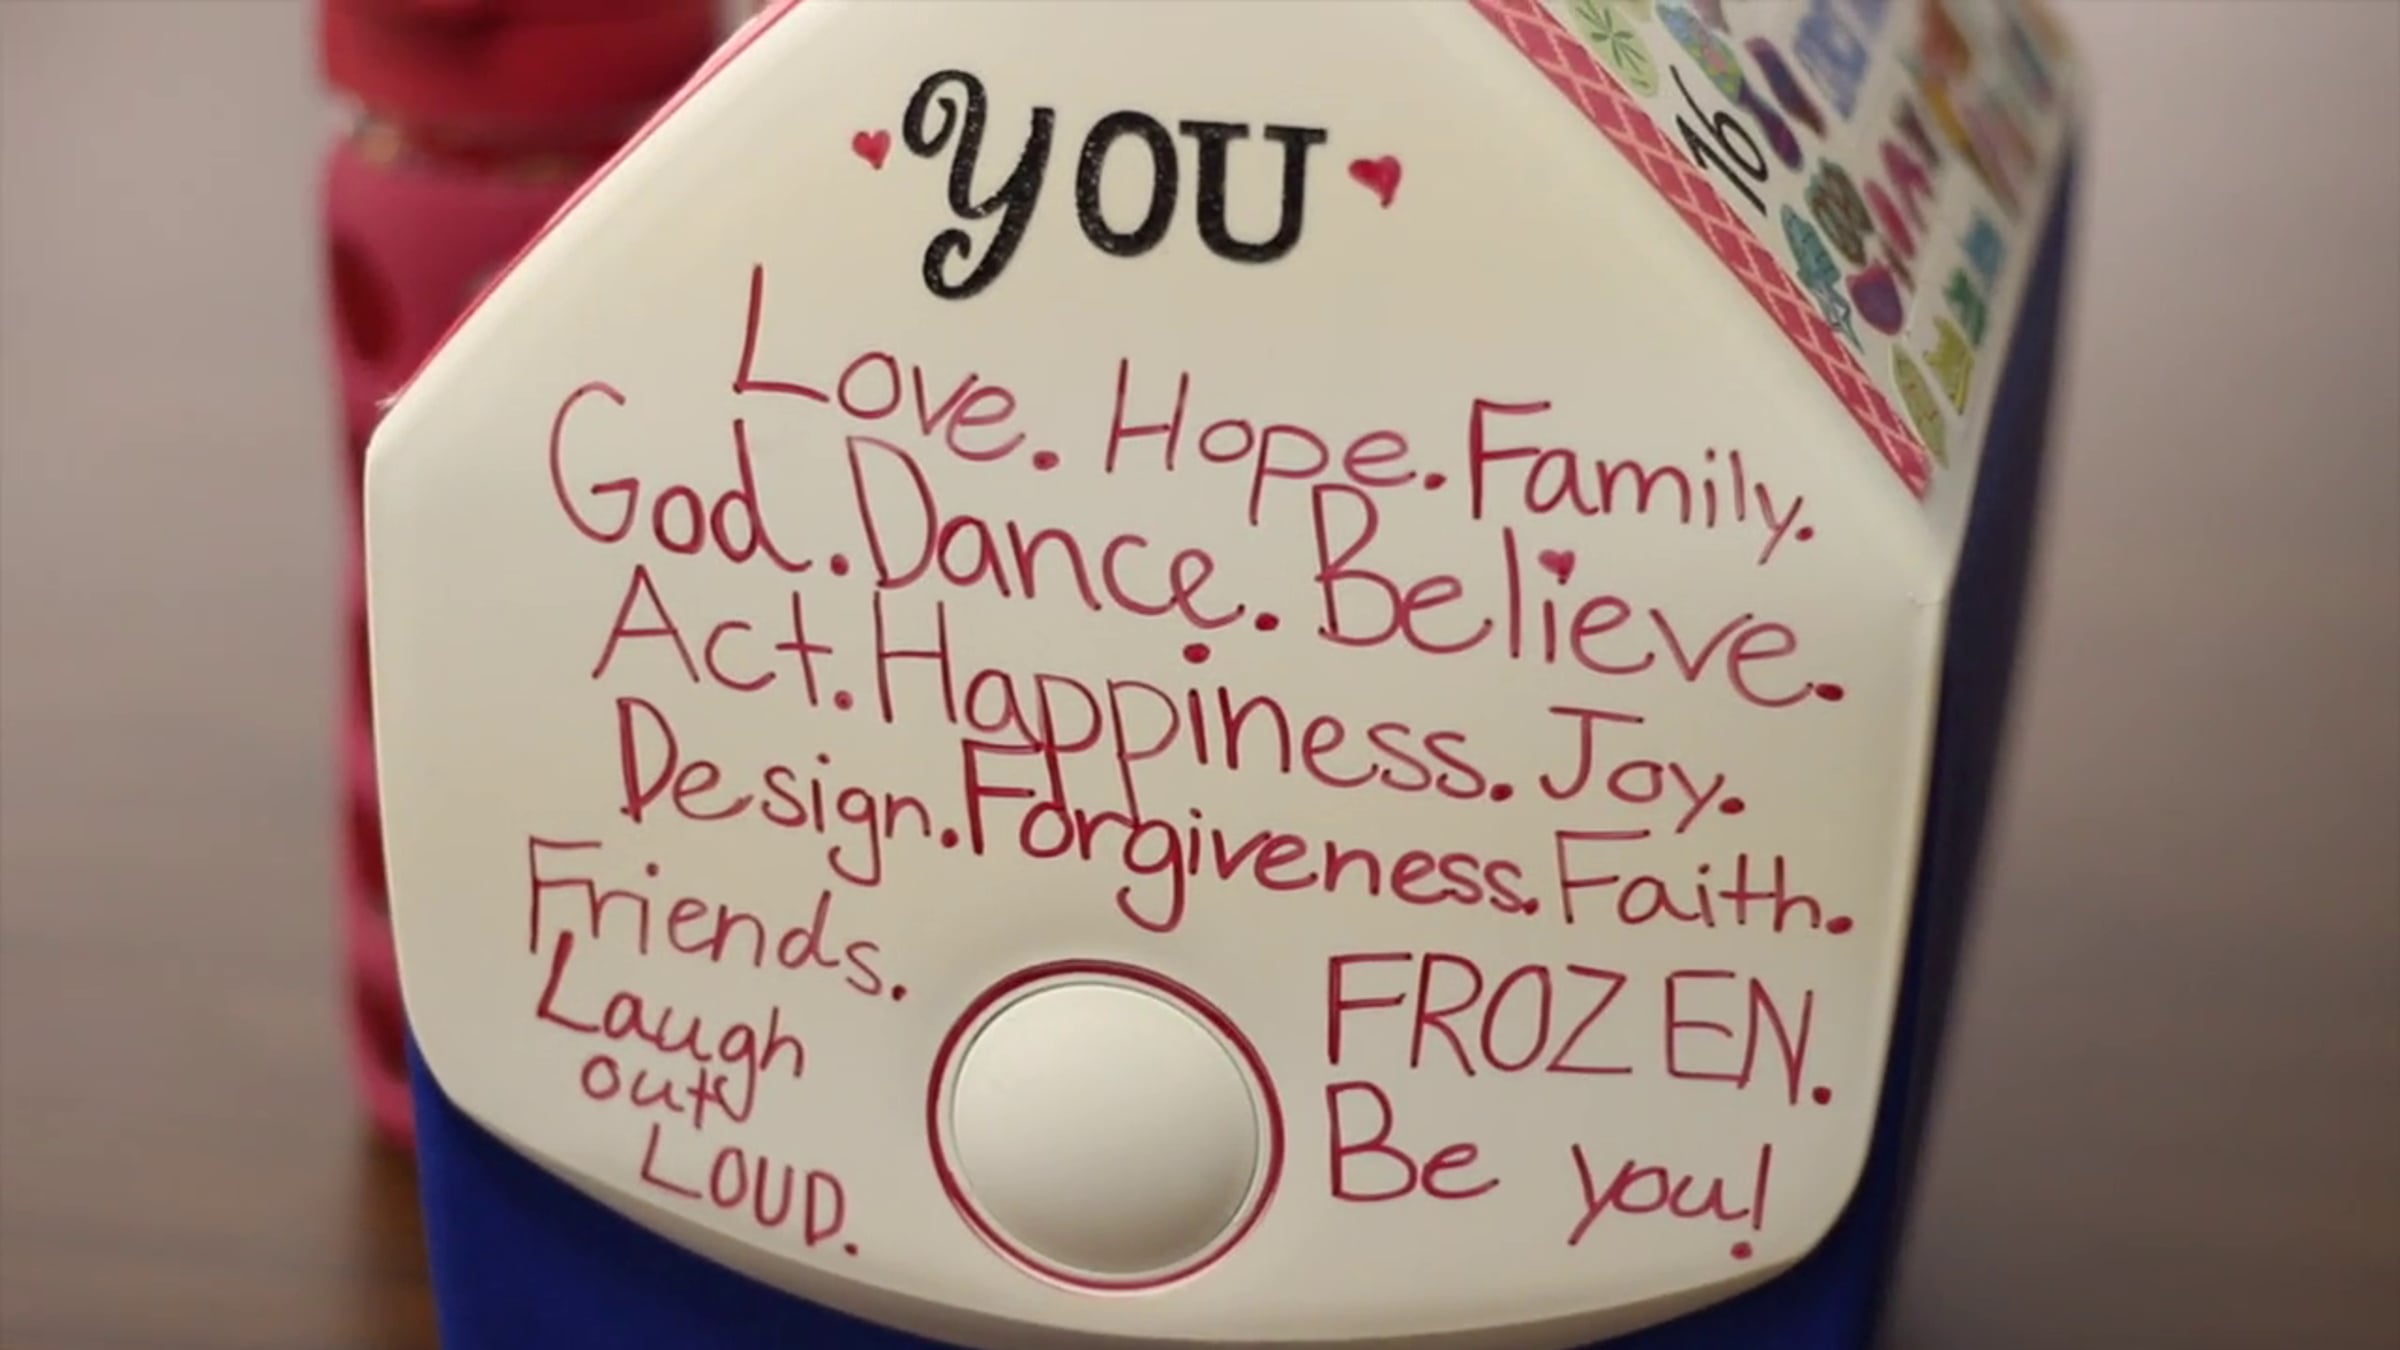 YOU
16
Love. Hope. Family.
God. Dance. Believe.
Act. Happiness. Joy.
Design. Forgiveness. Faith.
Friends.
Laugh
out
LOUD.
FROZEN.
Be you!